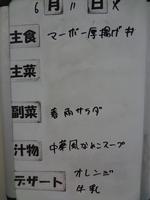 6月11日火
主食 マーボー厚揚げ丼
主菜
副菜 春雨サラダ
汁物 中華風なめこスープ
デザート オレンジ
牛乳